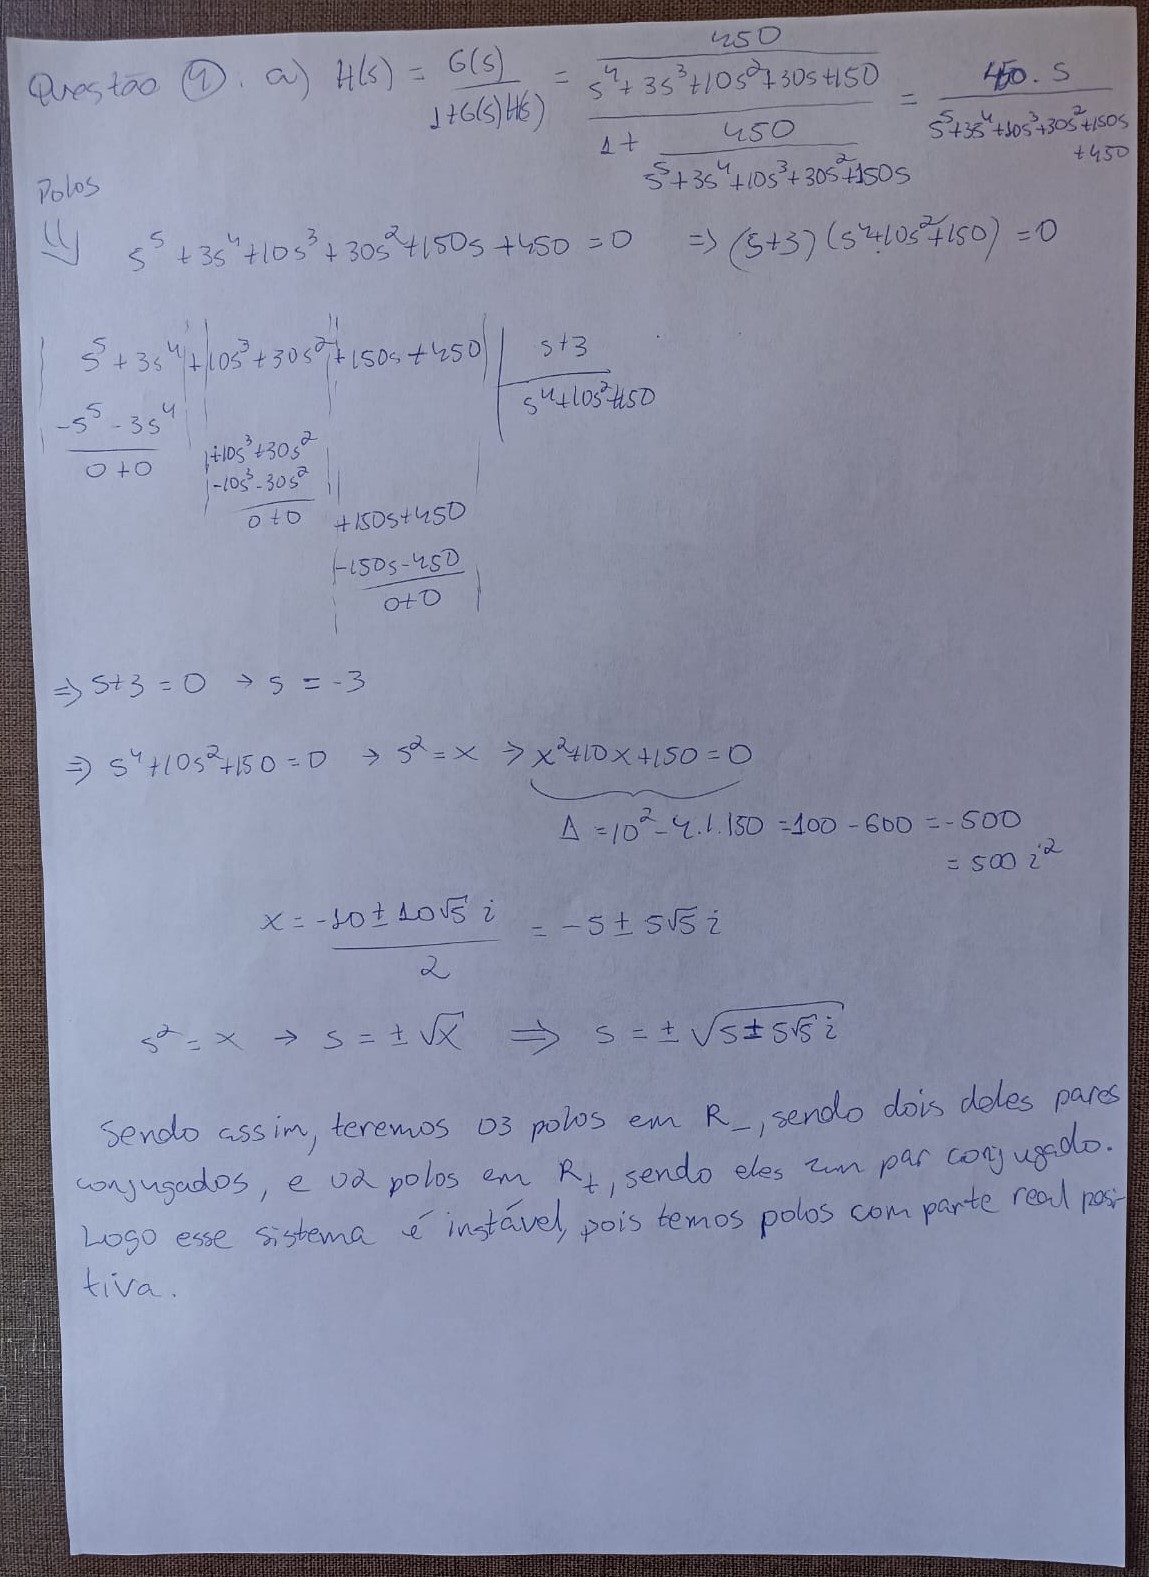 Questão 4. a) H(s) = G(s) / 1+G(s)H(s) = 450 / s⁴+3s³+10s²+30s+150 / 1 + 450 / s⁵+3s⁴+10s³+30s²+150s = 450.s / s⁵+3s⁴+10s³+30s²+150s+450
Polos
⇓ s⁵+3s⁴+10s³+30s²+150s+450=0 ⇒ (s+3)(s⁴+10s²+150)=0
s⁵+3s⁴+10s³+30s²+150s+450 | s+3
-s⁵-3s⁴ s⁴+10s²+150
0+0 +10s³+30s²
-10s³-30s²
0+0 +150s+450
-150s-450
0+0
⇒ s+3=0 → s=-3
⇒ s⁴+10s²+150=0 → s²=x ⇒ x²+10x+150=0
Δ=10²-4.1.150=100-600=-500
=500i²
x=-10±10√5 i / 2 = -5±5√5 i
s²=x → s=±√x ⇒ s=±√5±5√5 i
Sendo assim, teremos 03 polos em R_, sendo dois deles pares
conjugados, e 02 polos em R+, sendo eles um par conjugado.
Logo esse sistema é instável, pois temos polos com parte real posi-
tiva.